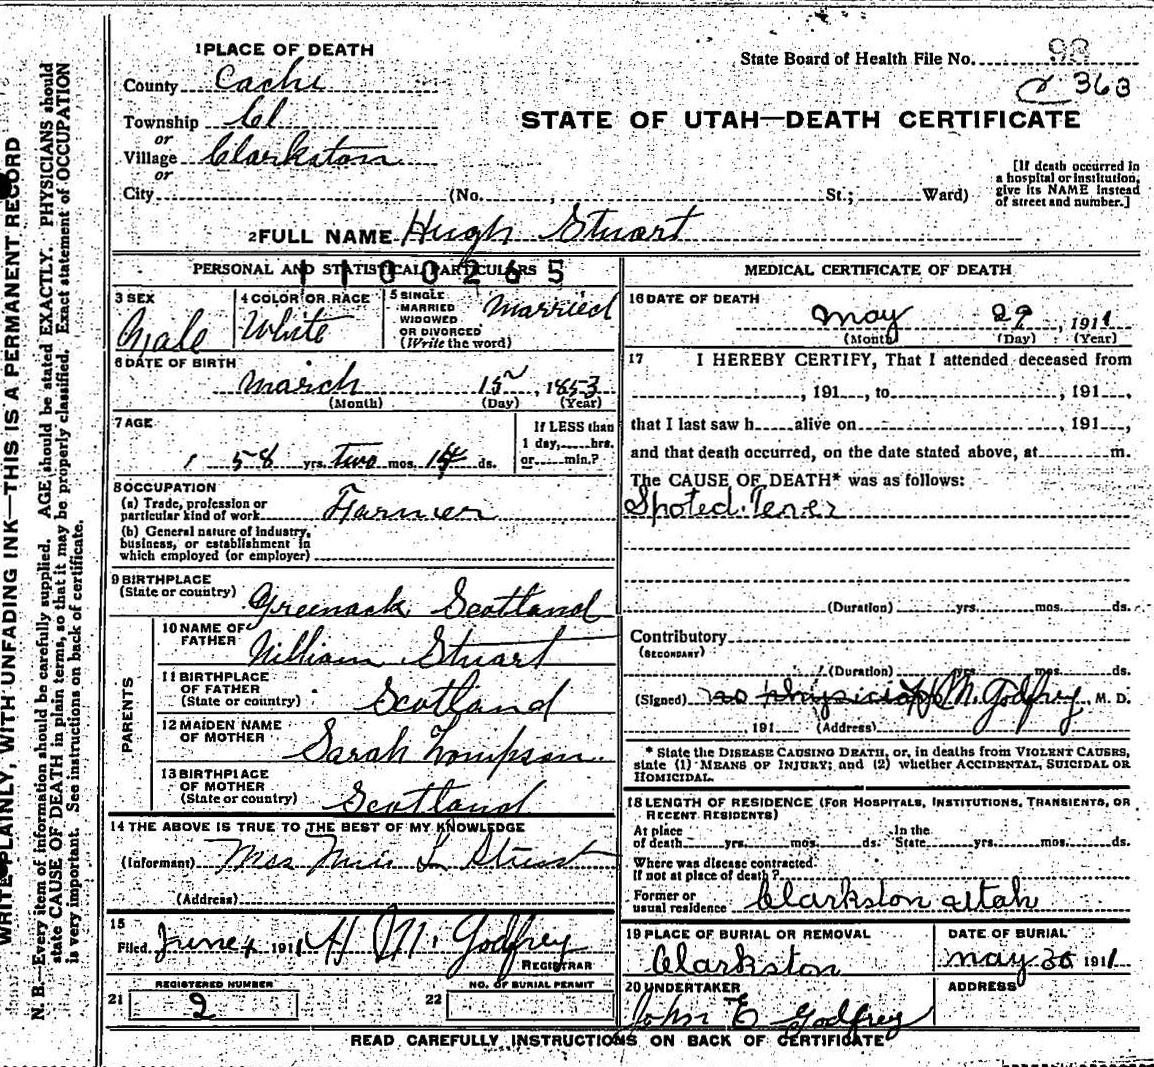 1 PLACE OF DEATH
County Cache
Township Cl
or
Village Clarkston
or
City (No. , St.; Ward)
State Board of Health File No. 98
C 363
STATE OF UTAH—DEATH CERTIFICATE
[If death occurred in
a hospital or institution,
give its NAME instead
of street and number.]
2 FULL NAME Hugh Stuart
PERSONAL AND STATISTICAL PARTICULARS
1100265
3 SEX
Male
4 COLOR OR RACE
White
5 SINGLE
MARRIED
WIDOWED
OR DIVORCED
(Write the word)
Married
6 DATE OF BIRTH
March 15, 1853
(Month) (Day) (Year)
7 AGE
58 yrs. two mos. 14 ds.
If LESS than
1 day, hrs.
or min.?
8 OCCUPATION
(a) Trade, profession or
particular kind of work Farmer
(b) General nature of industry,
business, or establishment in
which employed (or employer)
9 BIRTHPLACE
(State or country) Greenack Scotland
PARENTS
10 NAME OF
FATHER William Stuart
11 BIRTHPLACE
OF FATHER
(State or country) Scotland
12 MAIDEN NAME
OF MOTHER Sarah Tompson
13 BIRTHPLACE
OF MOTHER
(State or country) Scotland
14 THE ABOVE IS TRUE TO THE BEST OF MY KNOWLEDGE
(Informant) Stuart
(Address)
15
Filed June 4 1911 H M. Godfrey
REGISTRAR
21 REGISTERED NUMBER
2
22 NO. OF BURIAL PERMIT
MEDICAL CERTIFICATE OF DEATH
16 DATE OF DEATH
May 29, 1911
(Month) (Day) (Year)
17 I HEREBY CERTIFY, That I attended deceased from
, 191 , to , 191 ,
that I last saw h alive on , 191 ,
and that death occurred, on the date stated above, at m.
The CAUSE OF DEATH* was as follows:
Spoted Fever
(Duration) yrs. mos. ds.
Contributory
(SECONDARY)
(Duration) yrs. mos. ds.
(Signed) no physician H M. Godfrey, M. D.
191 (Address)
* State the DISEASE CAUSING DEATH, or, in deaths from VIOLENT CAUSES,
state (1) MEANS OF INJURY; and (2) whether ACCIDENTAL, SUICIDAL OR
HOMICIDAL.
18 LENGTH OF RESIDENCE (FOR HOSPITALS, INSTITUTIONS, TRANSIENTS, OR
RECENT RESIDENTS)
At place
of death yrs. mos. ds.
In the
State yrs. mos. ds.
Where was disease contracted
If not at place of death?
Former or
usual residence Clarkston Utah
19 PLACE OF BURIAL OR REMOVAL
Clarkston
DATE OF BURIAL
May 30 1911
20 UNDERTAKER
John E Godfrey
ADDRESS
READ CAREFULLY INSTRUCTIONS ON BACK OF CERTIFICATE
WRITE PLAINLY, WITH UNFADING INK—THIS IS A PERMANENT RECORD
N. B.—Every item of information should be carefully supplied. AGE should be stated EXACTLY. PHYSICIANS should
state CAUSE OF DEATH in plain terms, so that it may be properly classified. Exact statement of OCCUPATION
is very important. See instructions on back of certificate.